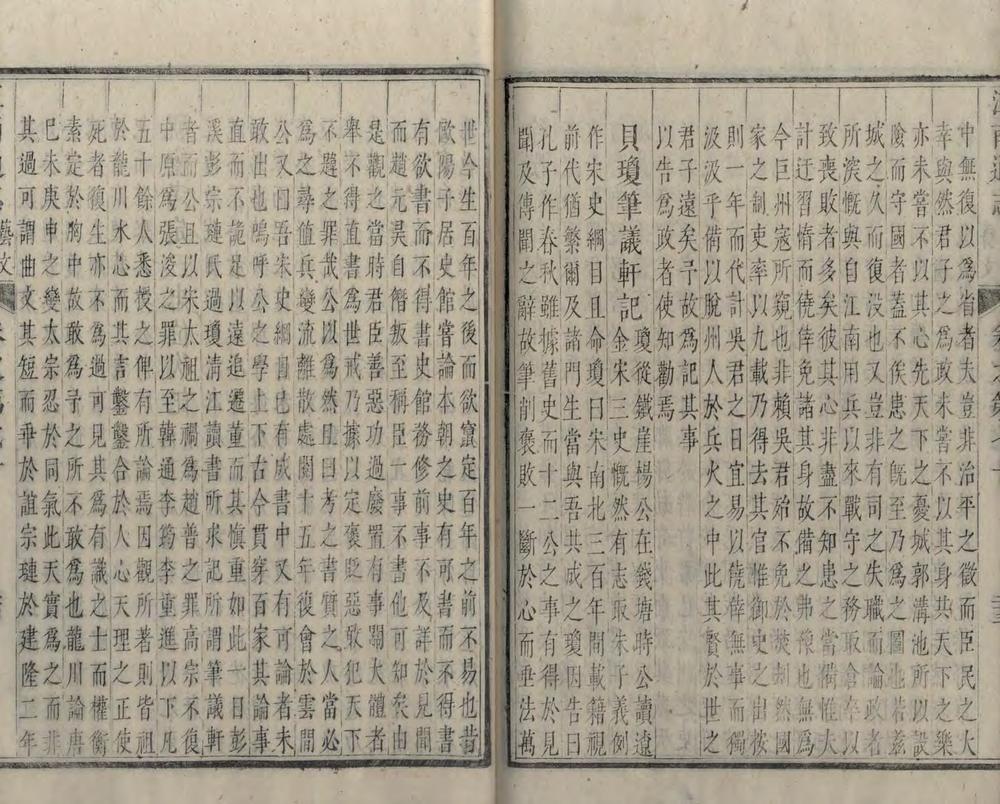 中無復以爲省者夫豈非治平之徵而臣民之大
幸與然君子之爲政未嘗不以其身共天下之樂
亦未嘗不以其心先天下之憂城郭溝池所以設
險而守國者蓋不俟患之既至乃爲之圖也若茲
城之久而復沒也又豈非有司之失職而論政者
所深慨與自江南用兵以來戰守之務取倉卒以
致喪敗者多矣彼其心非盡不知患之當備惟大
計迂習惰而僥倖免諸其身故其備之弗豫也無爲
今巨州寇所窺也非賴吳君殆不免於焚刦然國
家之制吏率以九載乃得去其官惟御史之出按
則一年而代計吳君之日宜易以僥倖無事而獨
汲汲乎備以脫州人於兵火之中此其賢於世之
君子遠矣予故爲記其事
以告爲政者使知勸焉
貝瓊筆議軒記 瓊從鐵崖楊公在錢塘時公讀遼
金宋三史慨然有志取朱子義例
作宋史綱目且命瓊曰宋南北三百年間載籍視
前代猶繁爾及諸門生當與吾共成之瓊因告曰
孔子作春秋雖據舊史而十二公之事有得於見
聞及傳聞之辭故筆削褒敗一斷於心而垂法萬
世今生百年之後而欲竄定百年之前不易也昔
歐陽子居史館嘗論本朝之史有可書而不得書
有欲書而不得書史館務修前事不及詳於見聞
而趙元昊自僭叛至稱臣一事不書他可知矣由
是觀之當時君臣善惡功過廢置有事關大體者
舉不得直書爲世戒乃據以定褒貶惡敢犯天下
不韙之罪哉公以爲然且曰考之書質之人當必
爲之尋值兵變流離散處閱十五年復會於雲間
公又曰吾宋史綱目已有成書中又有可論者未
敢出也嗚呼公之學上下古今貫穿百家其論事
直而不詭足以遠追遷董而其慎重如此一日彭
溪彭宗璉氏過瓊清江讀書所求記所謂筆議軒
者而公且以宋太祖之禍爲趙普之罪高宗不復
中原爲張浚之罪以至韓通李筠李重進以下凡
五十餘人悉授之俾有所論焉因觀所著則皆祖
於龍川水心而其吉鑿鑿合於人心天理之正使
死者復生亦不爲過可見其爲有識之士而權衡
素定於胸中故敢爲予之所不敢爲也龍川論唐
巳未庚申之變太宗忍於同氣此天實爲之而非
其過可謂曲文其短而垂於誼宗璉於建隆二年